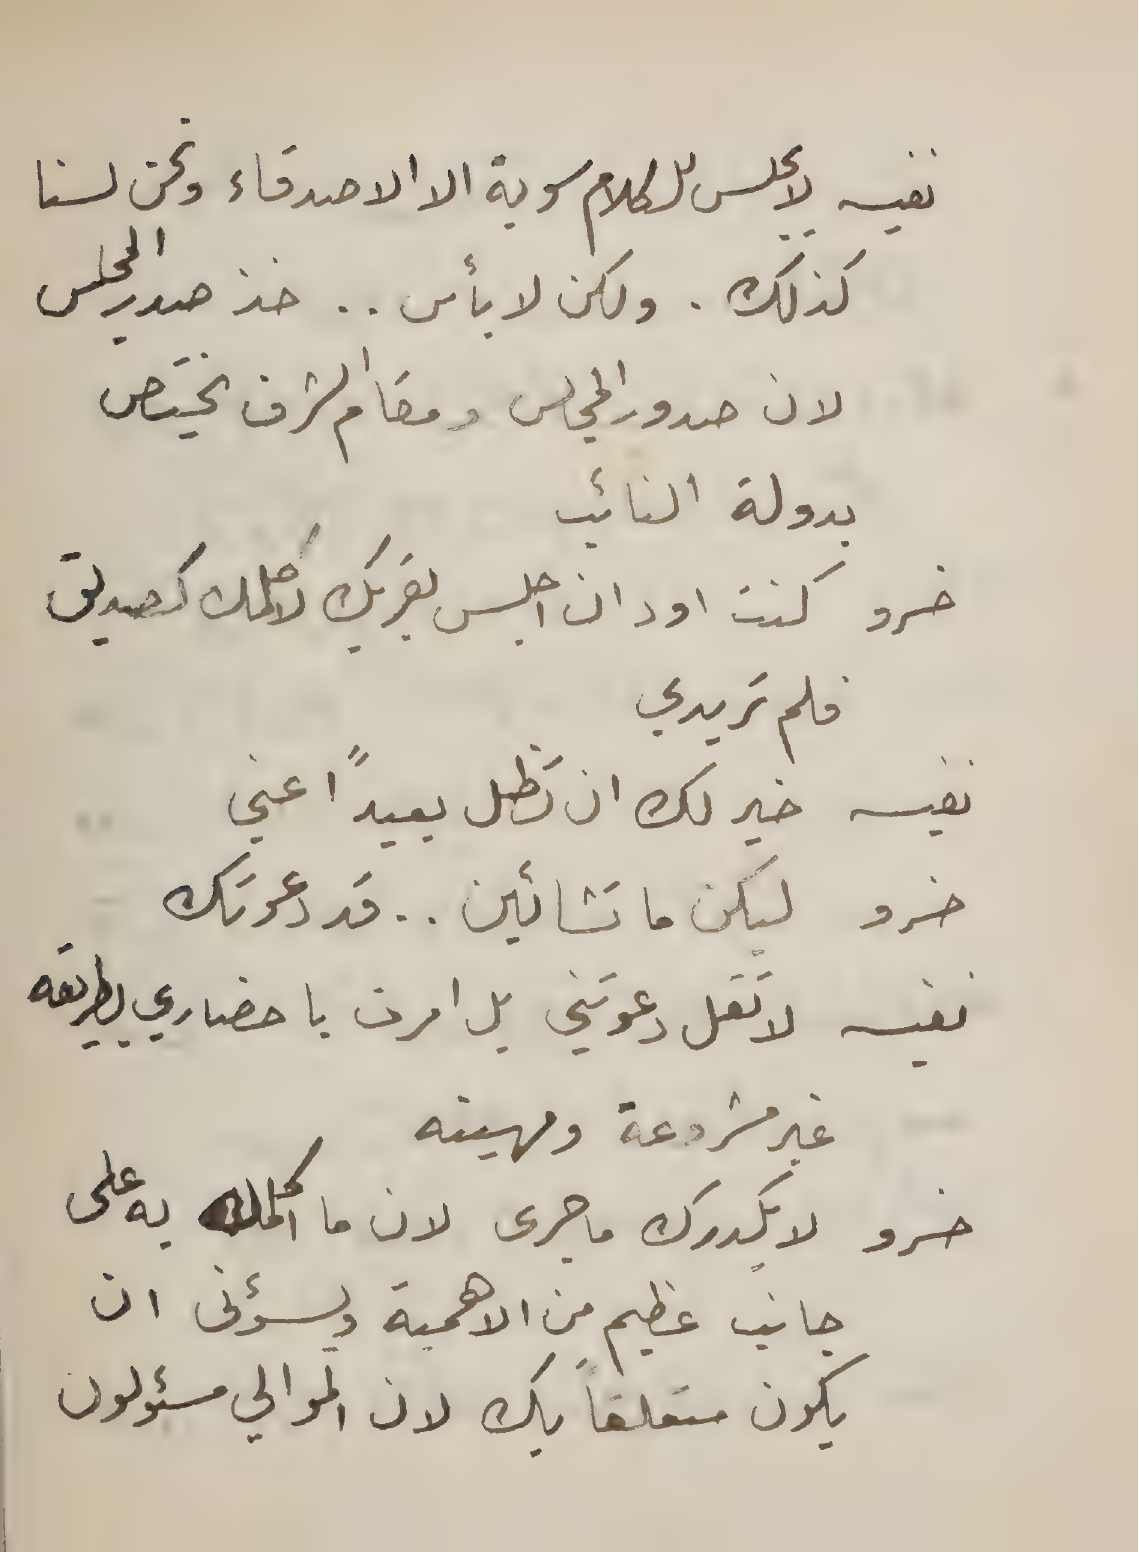 نفيسه لا يجلس للكلام سوية الا الاصدقاء ونحن لسنا
كذلك . ولكن لا بأس .. خذ صدر المجلس
لان صدور المجالس ومقام الشرف يختص
بدولة النائب
خسرو كنت اود ان اجلس بقربك لاكلمك كصديق
فلم تريدي
نفيسه خير لك ان تظل بعيداً عني
خسرو ليكن ما تشائين .. قد دعوتك
نفيسه لا تقل دعوتني بل امرت باحضاري بطريقه
غير مشروعة ومهينه
خسرو لا يكدرك ما جرى لان ما اكلمك به على
جانب عظيم من الاهمية ويسؤني ان
يكون متعلقاً بك لان الموالي مسئولون